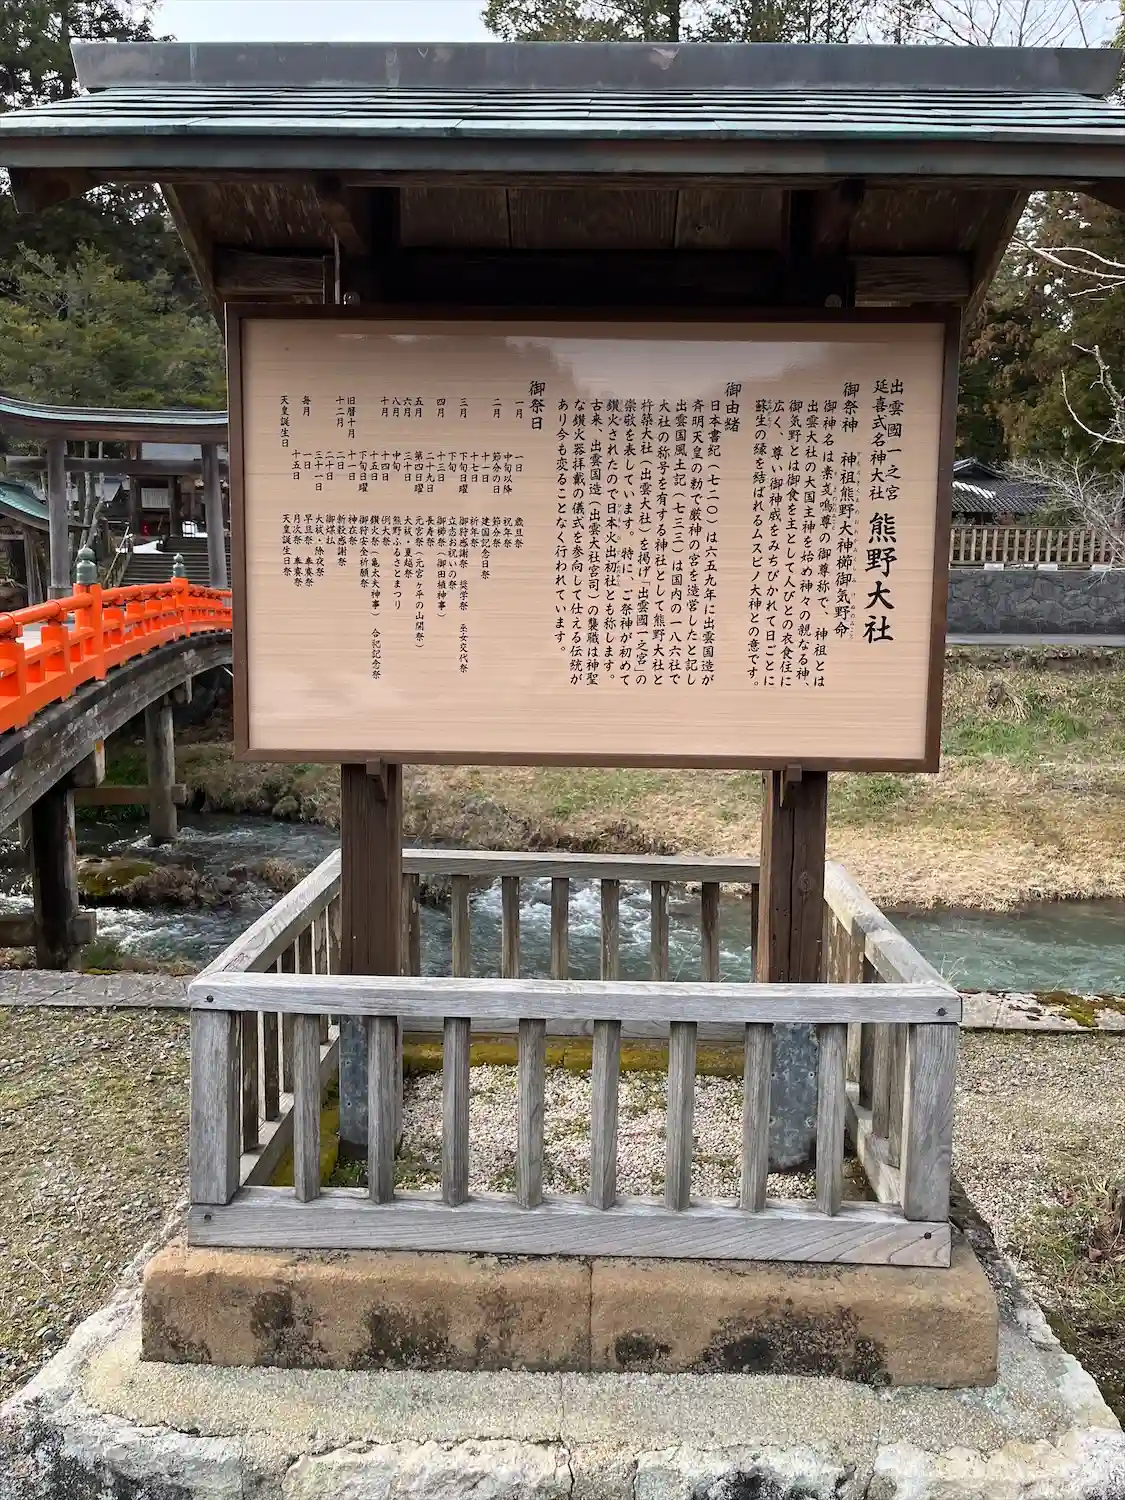 出雲國一之宮
延喜式名神大社
熊野大社
御祭神 神祖熊野大神櫛御気野命
御神名は素戔嗚尊の御尊称で、神祖とは
出雲大社の大国主神を始め神々の親なる神、
御気野とは御食を主として人びとの衣食住に
広く、尊い御神威をみちびかれて日ごとに
蘇生の縁を結ばれるムスビノ大神との意です。
御由緒
日本書紀(七二〇)は六五九年に出雲国造が
斉明天皇の勅で厳神の宮を造営したと記し
出雲国風土記(七三三)は国内の一八六社で
大社の称号を有する神社として熊野大社と
杵築大社(出雲大社)を掲げ「出雲國一之宮」の
崇敬を表しています。特に、ご祭神が初めて
鑚火されたので日本火出初社とも称します。
古来、出雲国造(出雲大社宮司)の襲職は神聖
な鑚火器拝戴の儀式を参向して仕える伝統が
あり今も変ることなく行われています。
御祭日
一月 一日 歳旦祭
中旬以降 祝年祭
二月 節分の日 節分祭
十一日 建国記念日祭
十七日 祈年祭
三月 下旬日曜 御狩感謝祭 奨学祭 巫女交代祭
下旬 立志お祝いの祭
四月 十三日 御櫛祭(御田植神事)
二十九日 長寿祭
五月 第四日曜 元宮祭(元宮ヶ平の山開祭)
六月 三十日 大祓・夏越祭
八月 中旬 熊野ふるさとまつり
十月 十四日 例大祭
十五日 鑚火祭(亀太夫神事) 合祀記念祭
下旬日曜 御安全祈願祭
旧暦十月 十一日 神在祭
十二月 二日 新穀感謝祭
二十日 御煤払
三十一日 大祓・除夜祭
毎月 一日 早旦祭 奉賽祭
十五日 月次祭 奉賽祭
天皇誕生日 天皇誕生日祭